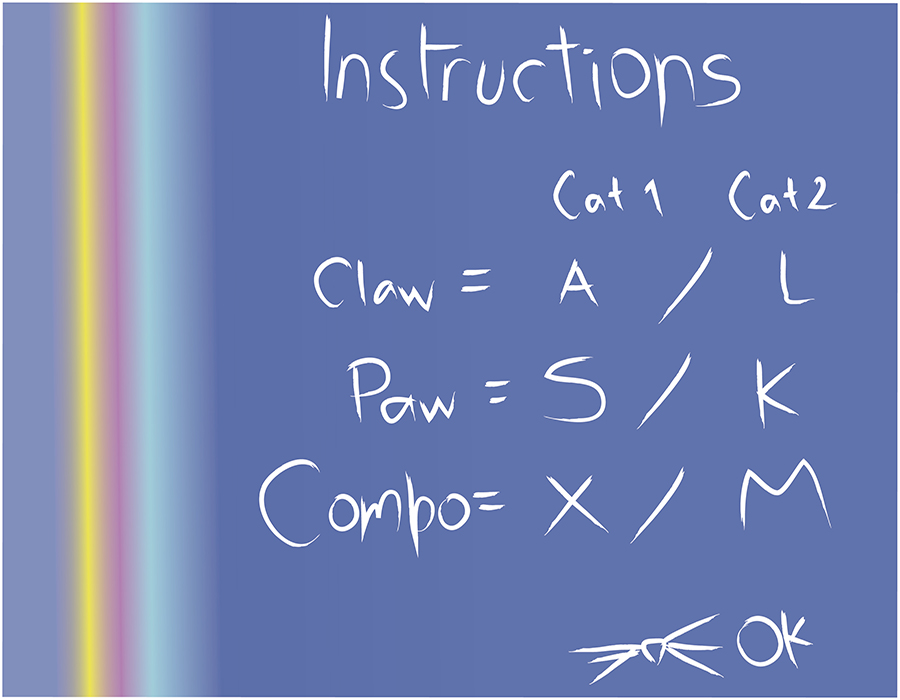 Instructions
Cat 1 Cat 2
Claw = A / L
Paw = S / K
Combo = X / M
OK